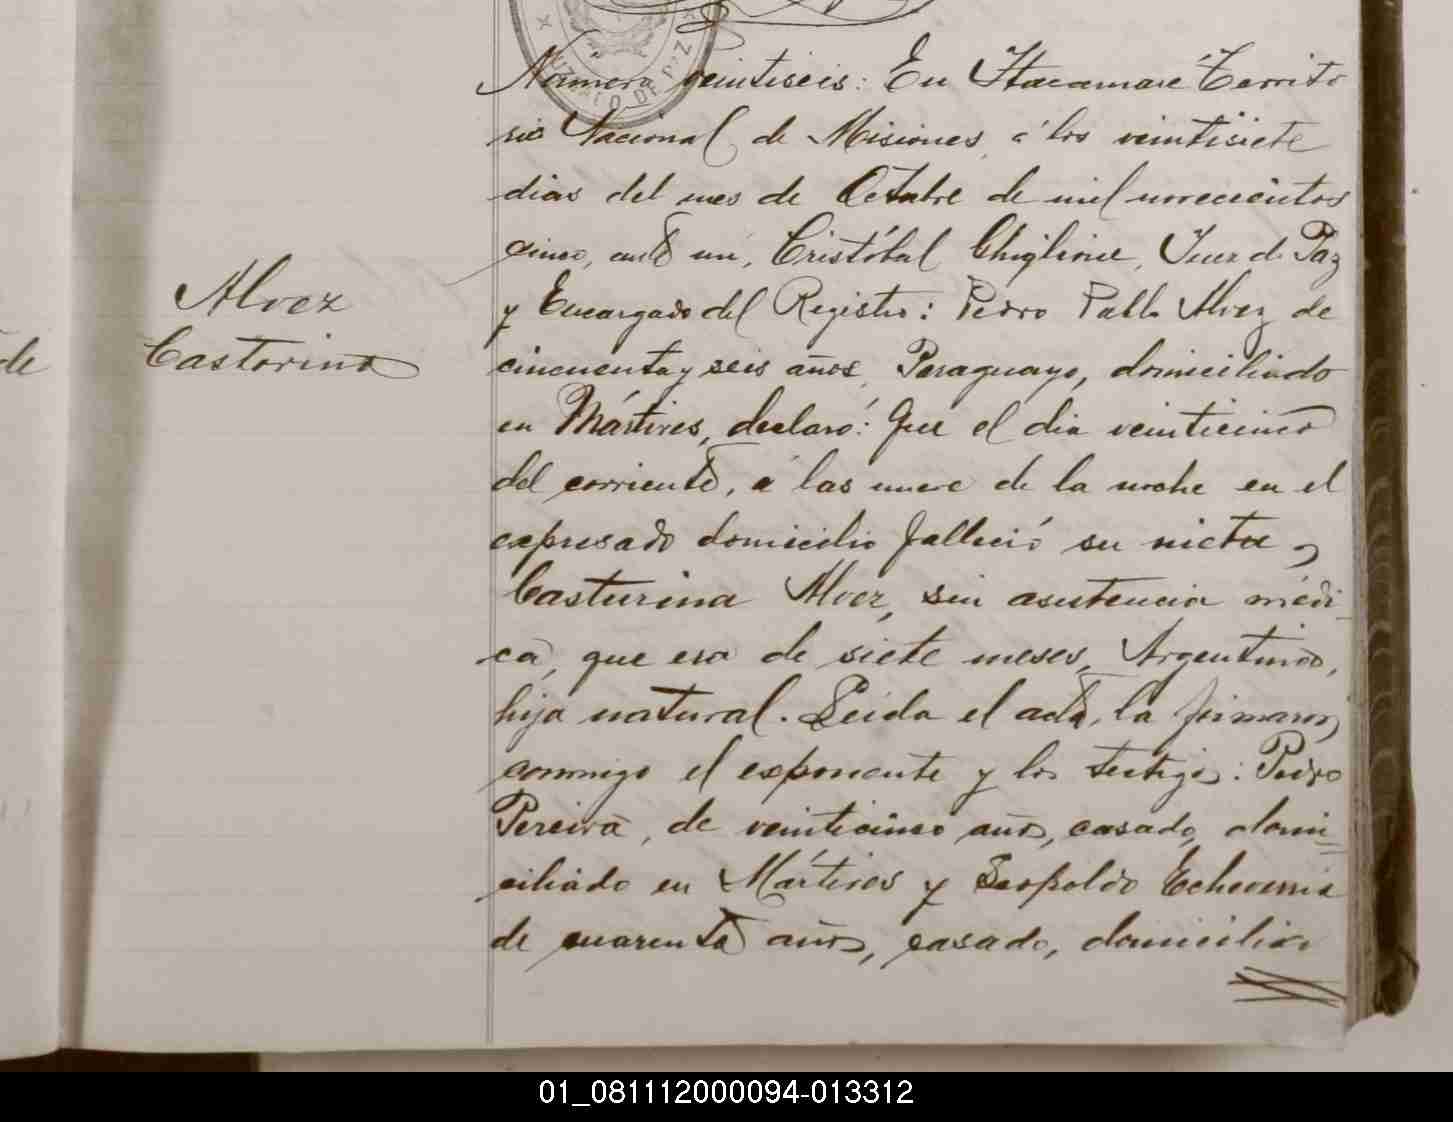 JUZGADO DE PAZ
Número veintiseis: En Itacaruaré Territo
rio Nacional de Misiones, á los veintisiete
dias del mes de Octubre de mil novecientos
cinco, ante mi, Cristóbal Ghiglione, Juez de Paz
y Encargado del Registro: Pedro Pablo Alvez de
de
Alvez
Castorina
cincuenta y seis años, Paraguayo, domiciliado
en Mártires, declaró: Que el dia veinticinco
del corriente, á las nueve de la noche en el
expresado domicilio falleció su nieta,
Casturina Alvez, sin asistencia médi-
ca, que era de siete meses, Argentina,
hija natural. Leida el acta, la firmaron
conmigo el exponente y los testigos: Pedro
Pereira, de veinticinco años, casado, domi-
ciliado en Mártires y Leopoldo Echeverria
de cuarenta años, casado, domicilia
01_081112000094-013312